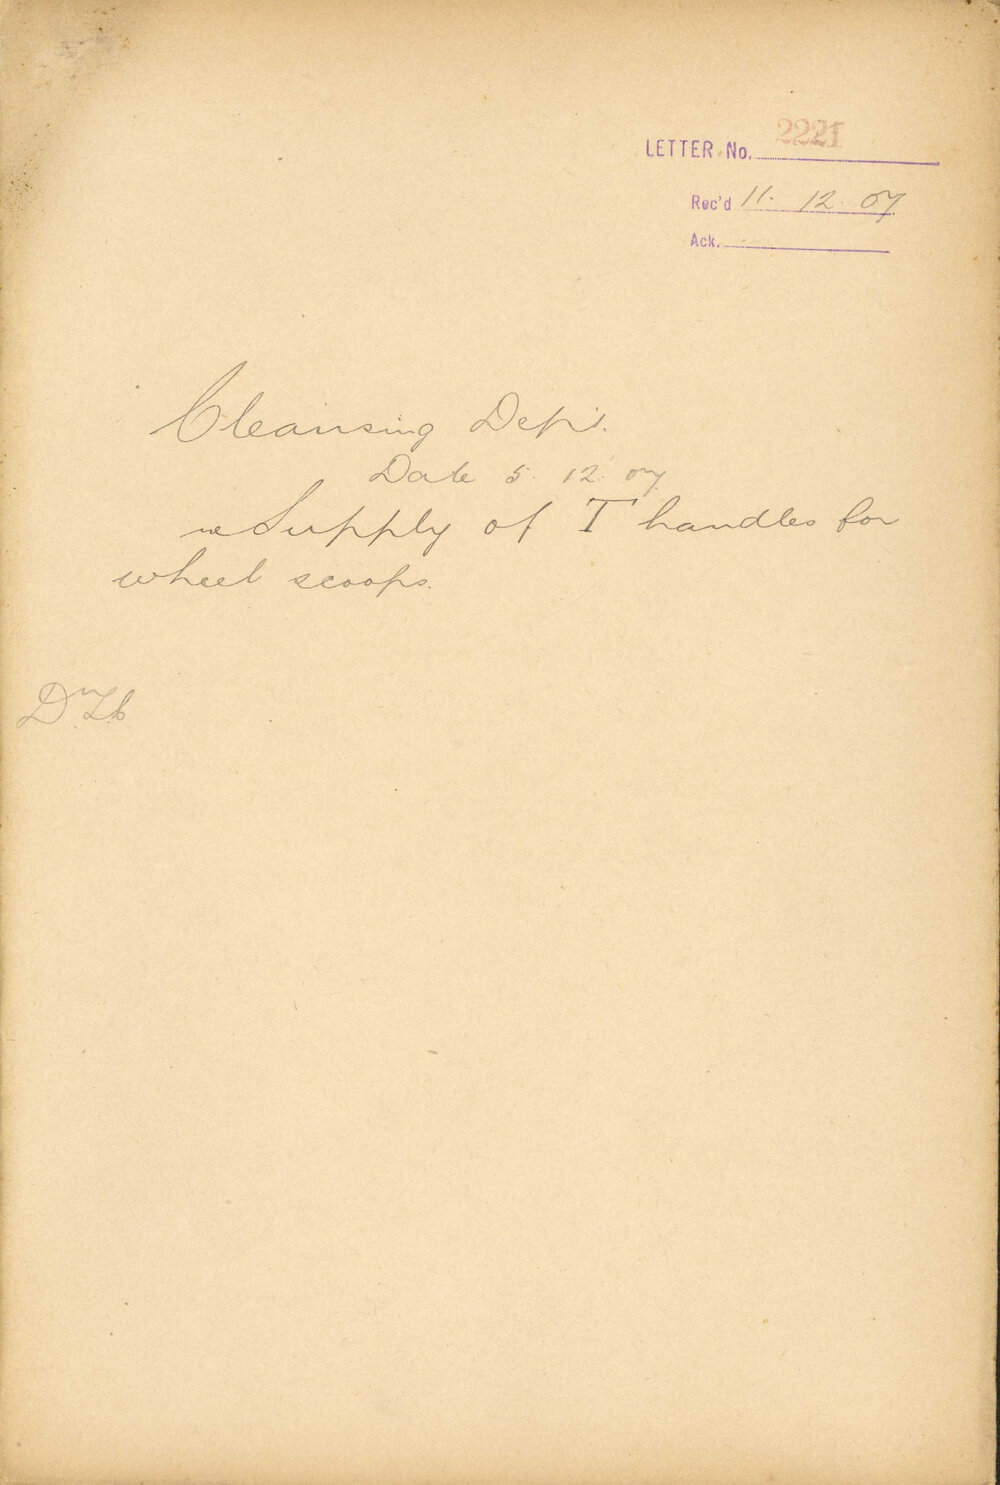 LETTER No. 2221
Rec'd 11. 12. 07
Ack.
Cleansing Dept.
Date 5. 12. 07
re Supply of T handles for
wheel scoops.